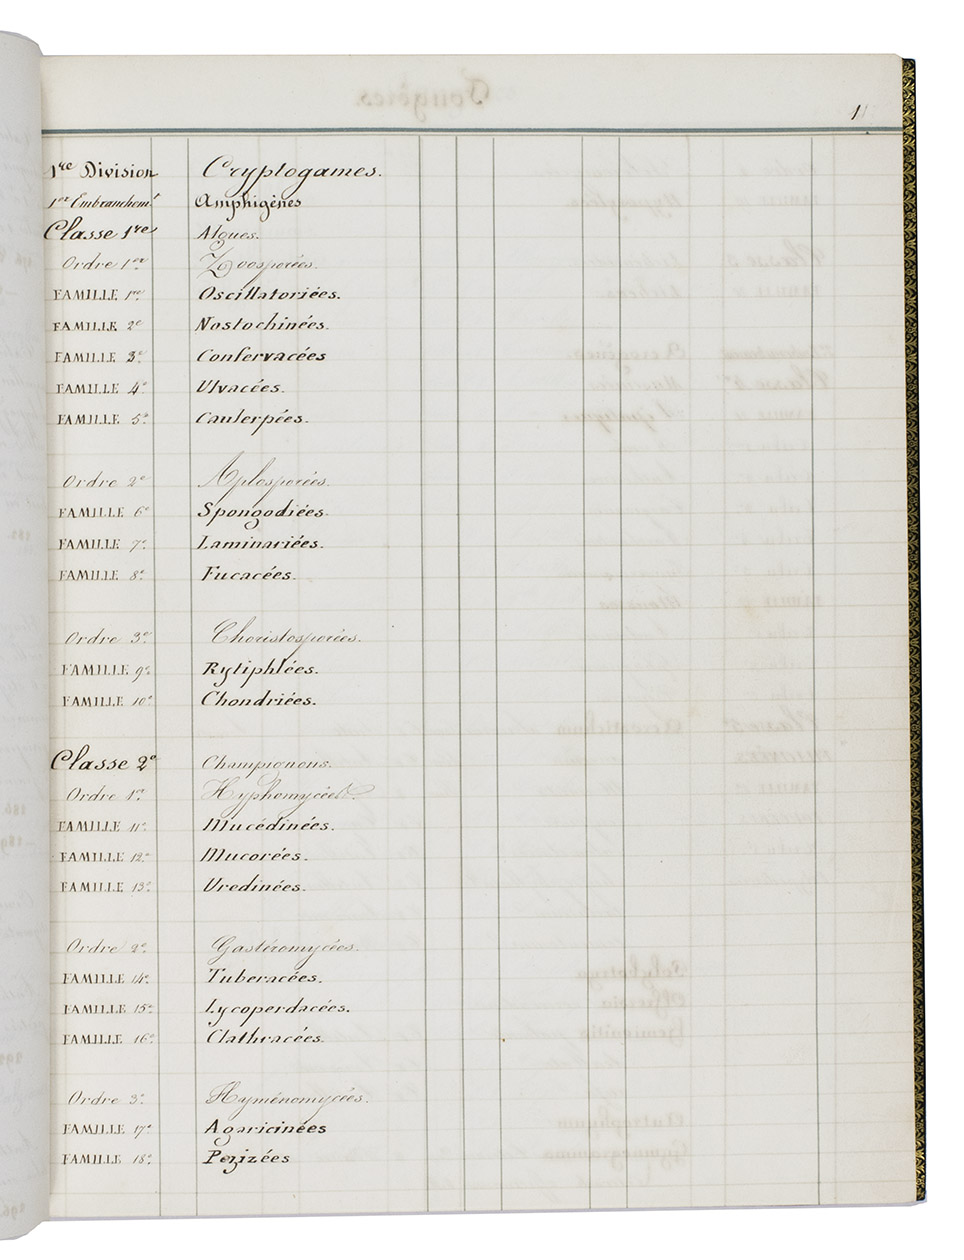 1
1re Division Cryptogames.
1er Embranchemt Amphigènes
Classe 1re Algues.
Ordre 1er Zoosporées.
FAMILLE 1re Oscillatoriées.
FAMILLE 2e Nostochinées.
FAMILLE 3e Confervacées
FAMILLE 4e Ulvacées.
FAMILLE 5e Caulerpées.
Ordre 2e Aplosporées.
FAMILLE 6e Spongodiées.
FAMILLE 7e Laminariées.
FAMILLE 8e Fucacées.
Ordre 3e Choristosporées.
FAMILLE 9e Rytiphlées.
FAMILLE 10e Chondriées.
Classe 2e Champignons.
Ordre 1er Hyphomycées.
FAMILLE 11e Mucédinées.
FAMILLE 12e Mucorées.
FAMILLE 13e Uredinées.
Ordre 2e Gastéromycées.
FAMILLE 14e Tuberacées.
FAMILLE 15e Lycoperdacées.
FAMILLE 16e Clathracées.
Ordre 3e Hyménomycées.
FAMILLE 17e Agaricinées
FAMILLE 18e Pezizées